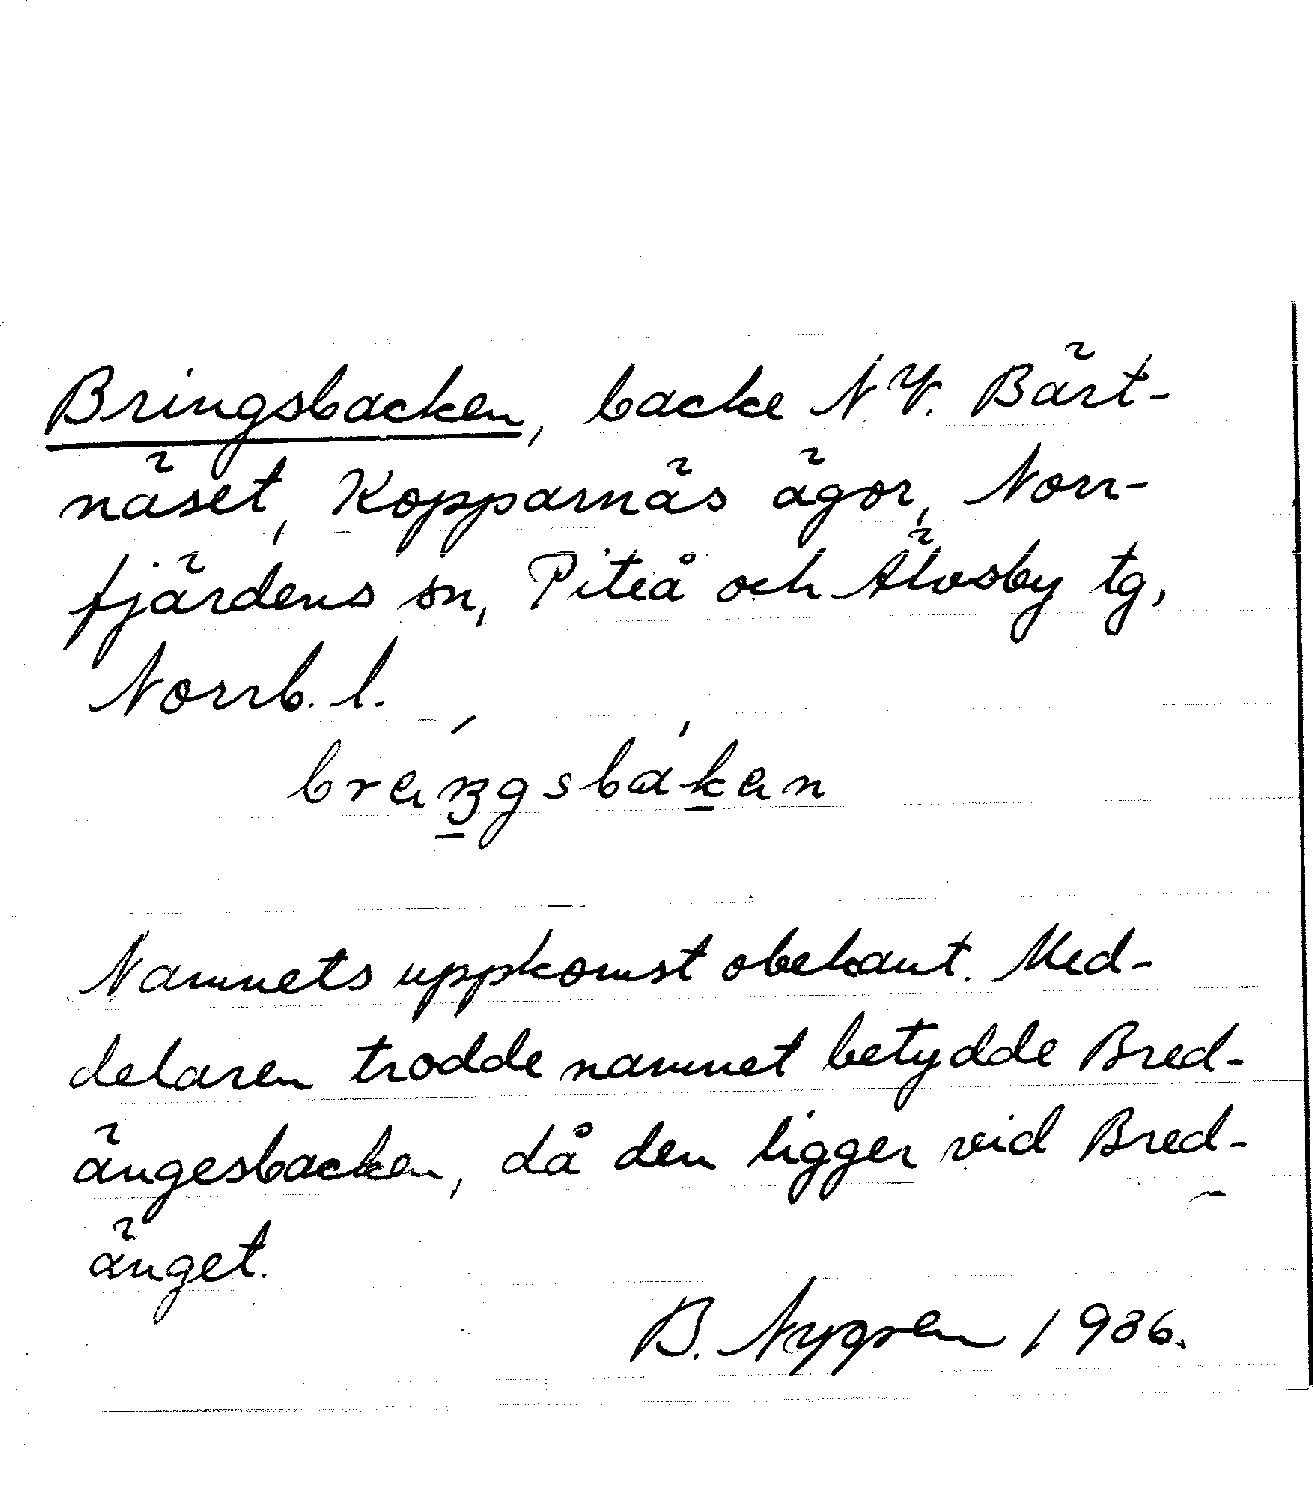 Bringsbacken, backe N.V. Bärt-
näset, Kopparnäs ägor, Norr-
fjärdens sn, Piteå och Älvsby tg,
Norrb. l.
Namnets uppkomst obekant. Med-
delaren trodde namnet betydde Bred-
ängesbacken, då den ligger vid Bred-
änget.
B. Nygren 1936.